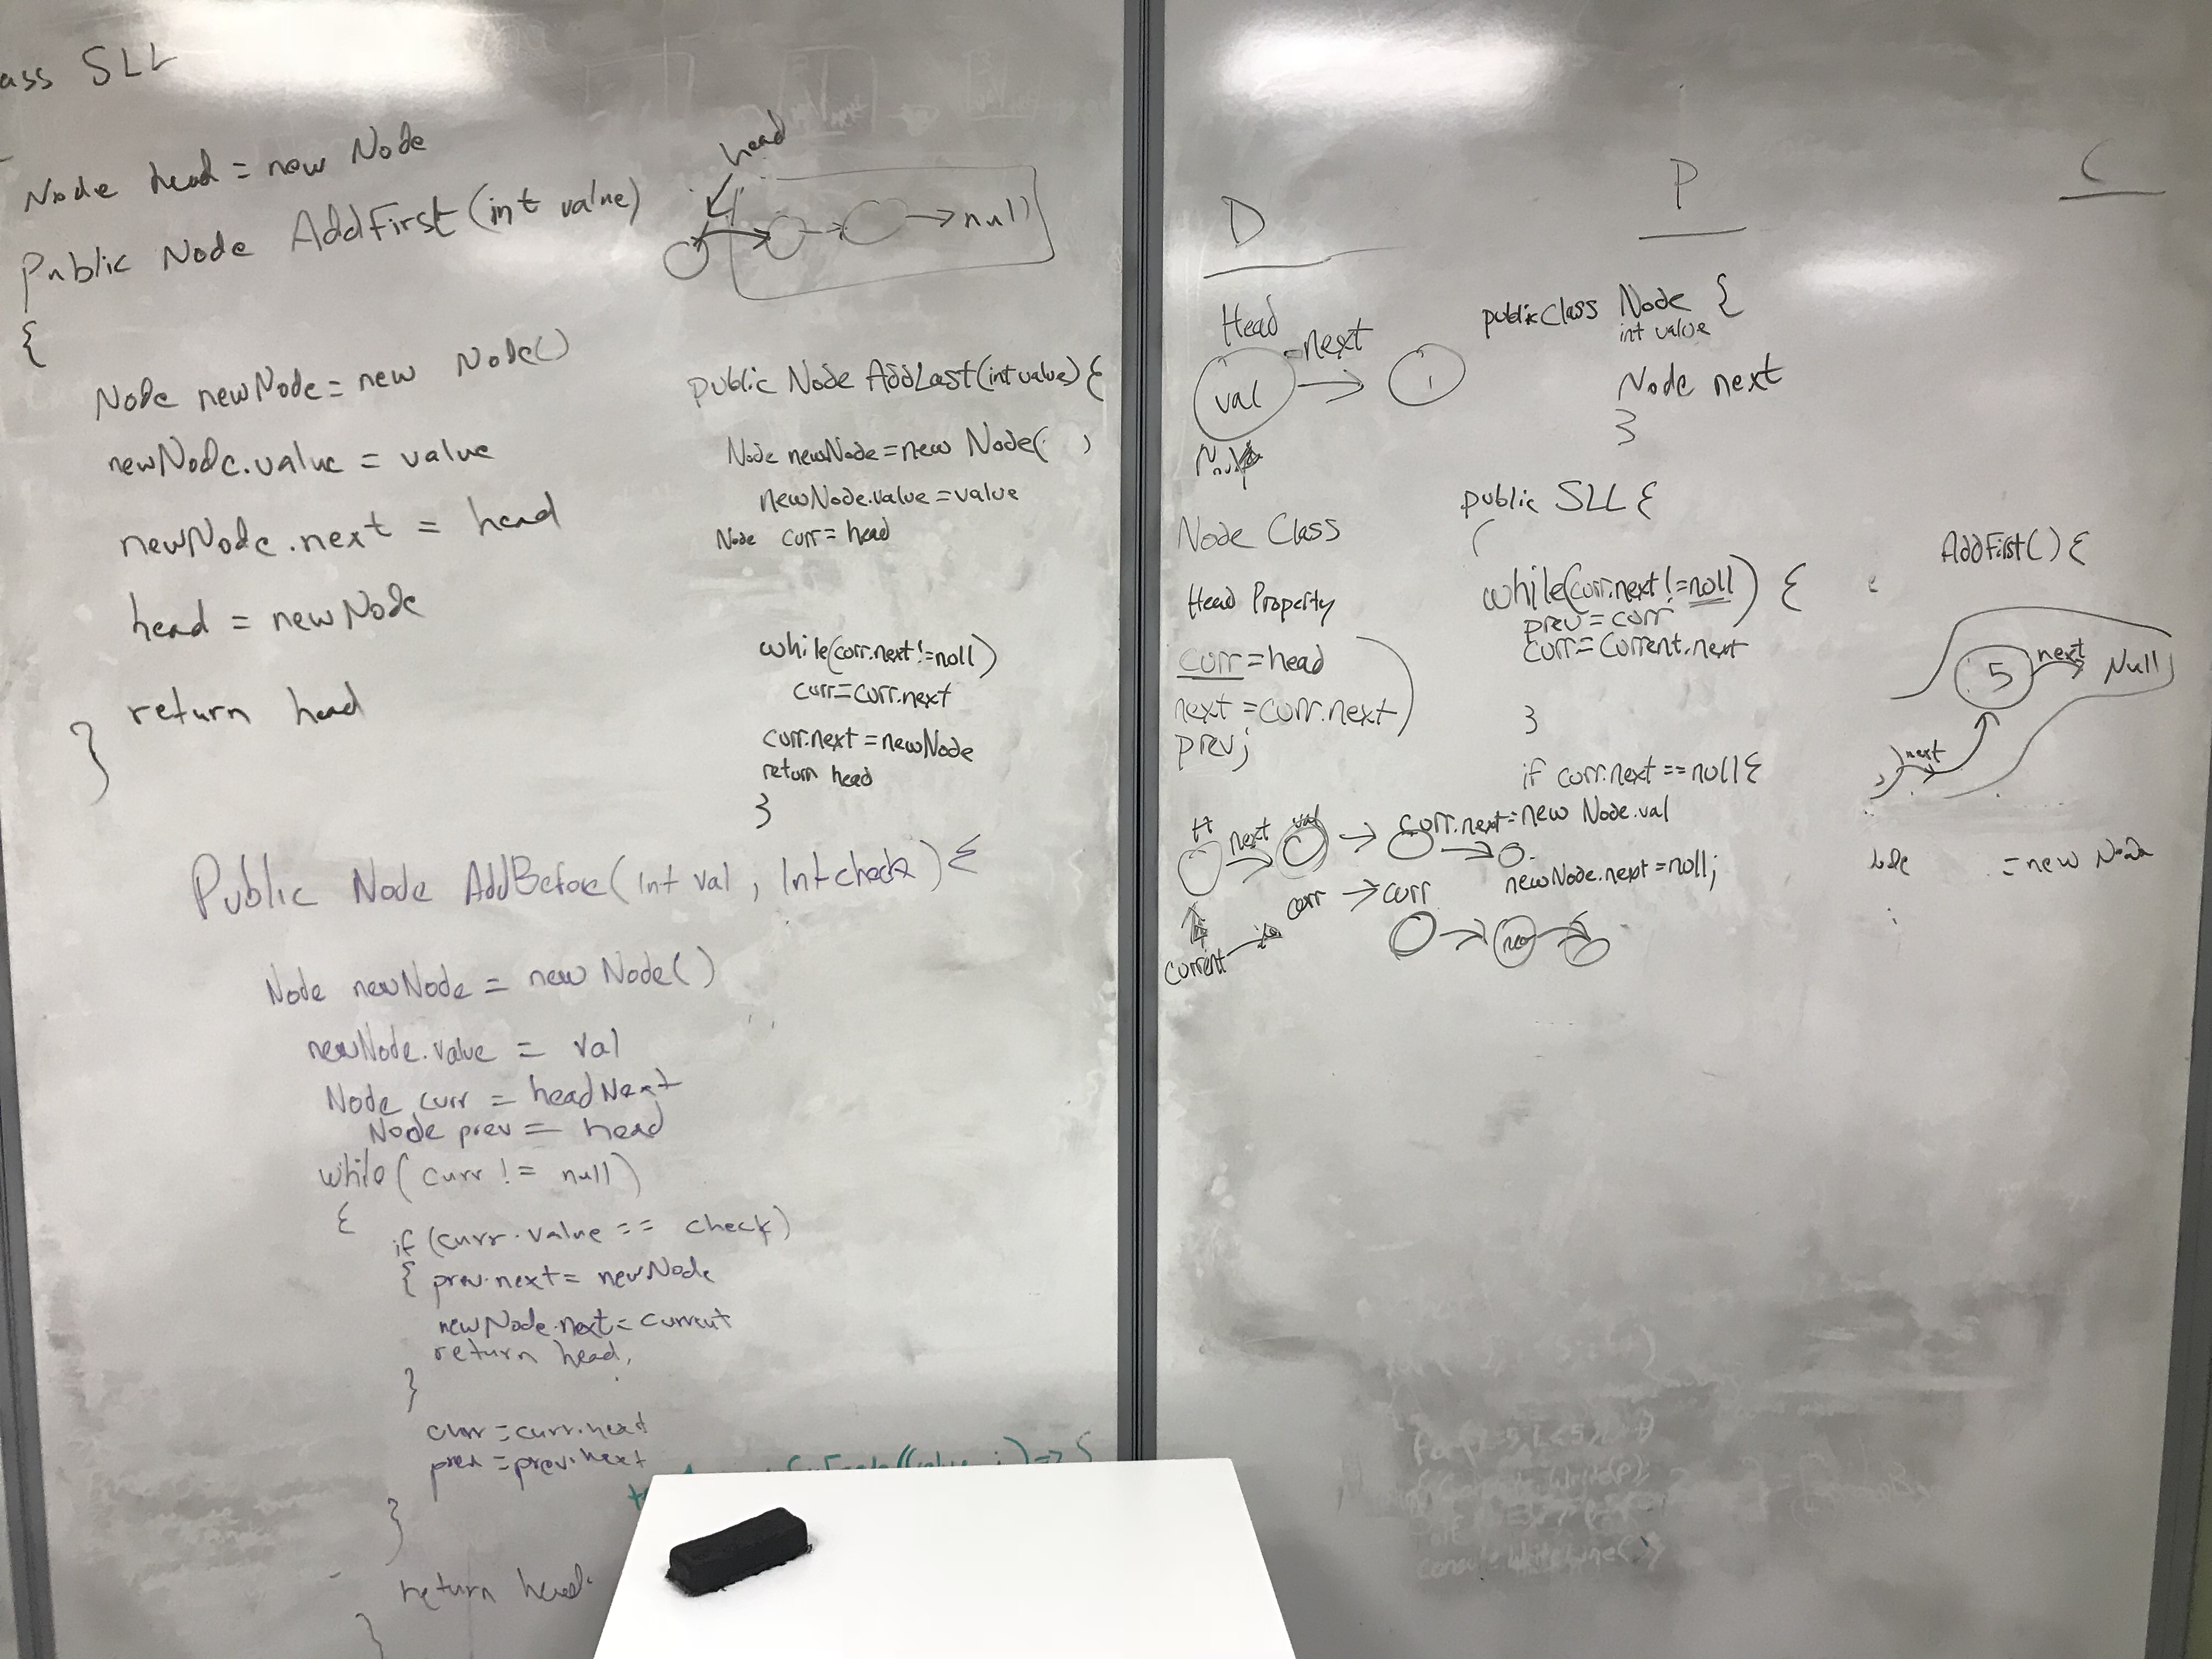 ass SLL
Node head = new Node
Public Node AddFirst(int value)
{
Node newNode = new Node()
newNode.value = value
newNode.next = head
head = newNode
return head
}
head
null
public Node AddLast(int value) {
Node newNode = new Node( )
newNode.value = value
Node curr = head
while(curr.next != null)
curr = curr.next
curr.next = newNode
return head
}
Public Node AddBefore(int val, Int check) {
Node newNode = new Node()
newNode.value = val
Node curr = headNext
Node prev = head
while(curr != null)
{
if (curr.value == check)
{ prev.next = newNode
newNode.next = current
return head;
}
curr = curr.head
prev = prev.next
}
return head
}
D
Head
next
val
1
Node Class
Head Property
curr = head
next = curr.next
prev;
H next val
curr → curr
current
P
public class Node {
int value
Node next
}
public SLL {
while(curr.next != null) {
prev = curr
curr = current.next
}
if curr.next == null {
curr.next = new Node.val
newNode.next = null;
new
C
AddFirst() {
5 next Null
next
= new Node